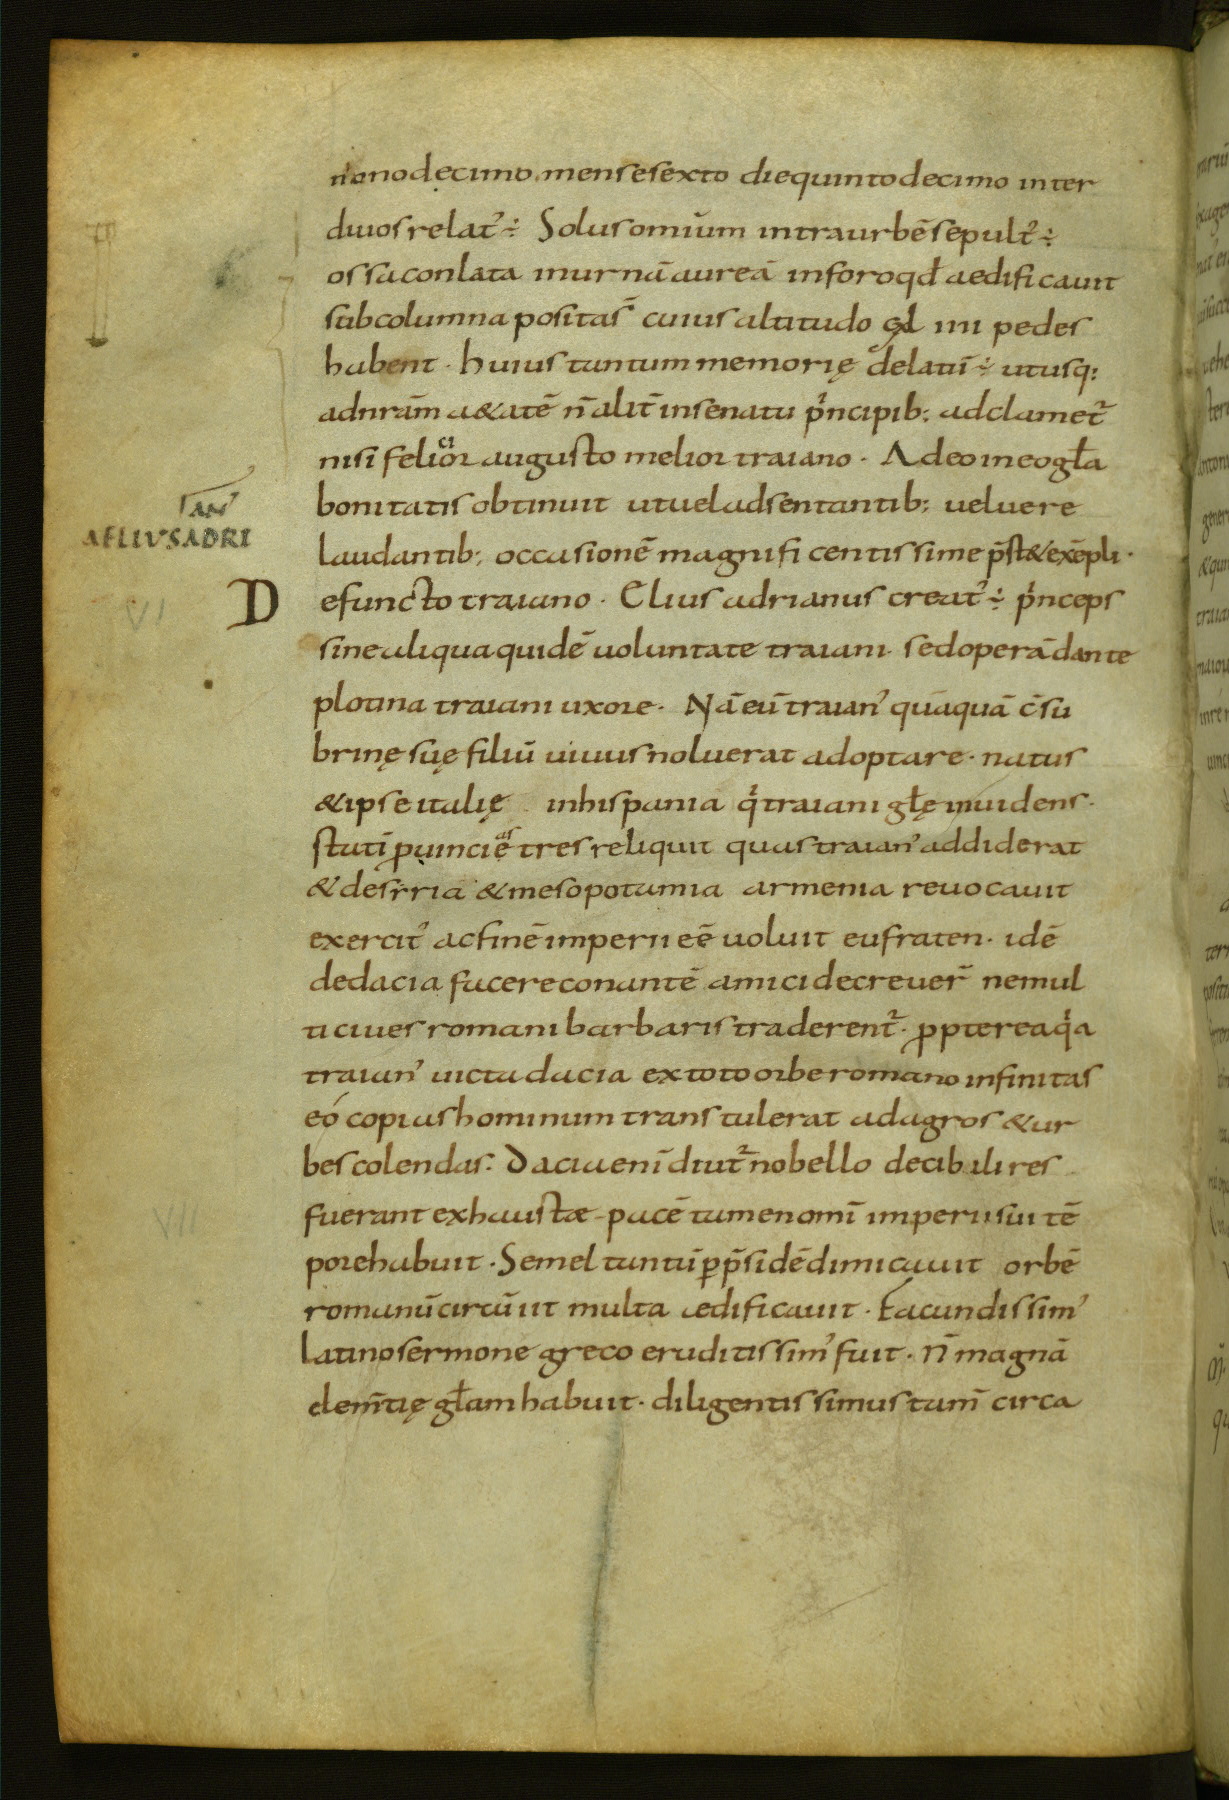 nonodecimo mense sexto die quinto decimo inter
diuos relat᾿ ÷ Solus omiũm intra urbē sepult᾿ ÷
ossa conlata in urnā aureā in foro qđ aedificauit
sub columna posita s̄ cuius altitudo cxl iiii pedes
habent · huius tantum memorię delatū ÷ utusq;
ad nrām aetatē n̄ alit̄ in senatu p͛ncipib; adclamet᷑
nisi felicior augusto melior traiano · Adeo in eo gła
bonitatis obtinuit ut uel adsentantib; uel uere
laudantib; occasionē magnificentissime p̄st& exēpli ·
AELIUS ADRI
IAN᾿
VI
Defuncto traiano · Elius adrianus creat᾿ ÷ p͛nceps
sine aliqua quidē uoluntate traiani · sed operā dante
plotina traiani uxore · Nā eū traian᾿ quāquā c̄su
brinę suę filiū uiuus noluerat adoptare · natus
& ipse italię in hispania q͛ traiani głę inuidens ·
statī ꝓuincięas tres reliquit quas traian᾿ addiderat
& desrria & mesopotamia armenia reuocauit
exercit᾿ ac finē imperii eē uoluit eufraten · idē
de dacia facere conantē amici decreuer̄ ne mul
ti ciues romani barbaris traderent᷑ · ꝓpterea q͛a
traian᾿ uicta dacia ex toto orbe romano infinitas
eó copias hominum transtulerat ad agros & ur
bes colendas · Dacia enī diut᷑no bello decibali res
VII
fuerant exhaustæ - pacē tamen omī imperii sui tē
pore habuit · Semel tantū ꝑ p̄sidē dimicauit orbē
romanū circūiit multa aedificauit · Facundissim᾿
latino sermone greco eruditissim᾿ fuit · n̄ magnā
clem̄tię głam habuit · diligentissimus tam̄ circa